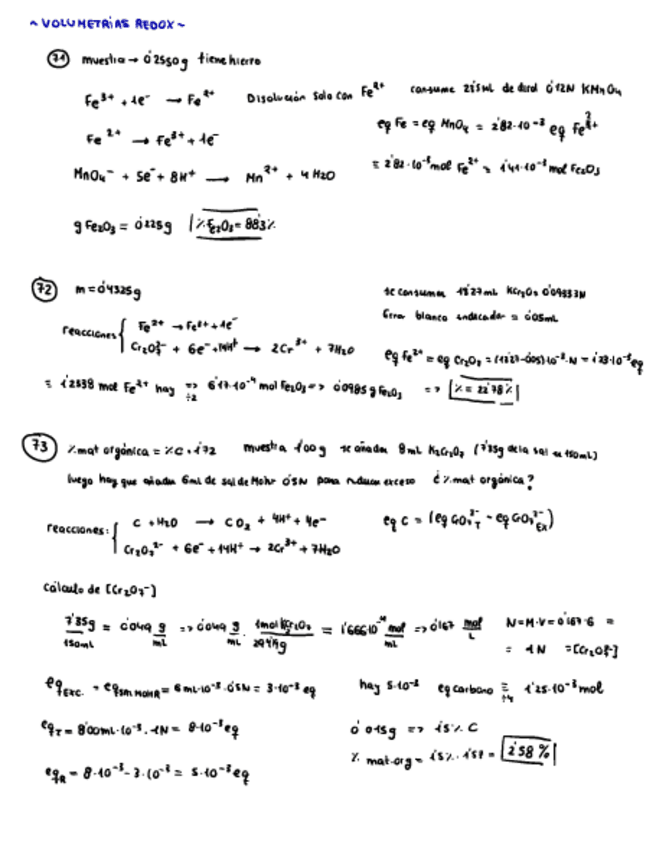 ~ VOLUMETRIAS REDOX ~
71 muestra → 0'2550 g tiene hierro
Fe³⁺ + 1e⁻ → Fe²⁺ Disolución solo con Fe²⁺ consume 23'5 mL de disol 0'12N KMnO₄
Fe²⁺ → Fe³⁺ + 1e⁻ eq Fe = eq MnO₄ = 2'82·10⁻³ eq Fe
MnO₄⁻ + 5e⁻ + 8H⁺ → Mn²⁺ + 4 H₂O = 2'82·10⁻³ mol Fe²⁺ = 1'41·10⁻³ mol Fe₂O₃
g Fe₂O₃ = 0'225g % Fe₂O₃ = 88'3%
72 m = 0'4325g se consumen 12'27 mL 0'09933N
Error blanco indicador = 0'05mL
reacciones Fe²⁺ → Fe³⁺ + 1e⁻
Cr₂O₇²⁻ + 6e⁻ + 14H⁺ → 2Cr³⁺ + 7H₂O eq Fe²⁺ = eq Cr₂O₇ = (12'27-0'05)·10⁻³·N = 1'23·10⁻³ eq
mol Fe²⁺ hay ⇒ ÷2 6'17·10⁻⁴ mol Fe₂O₃ => 0'0985 g Fe₂O₃ => % = 22'78%
73 % mat orgánica = % C · 1'72 muestra 1'00 g se añaden 8 mL K₂Cr₂O₇ (7'35g de la sal en 150mL)
luego hay que añadir 6 mL de sal de Mohr 0'5N para reducir exceso ¿% mat orgánica?
reacciones: C + H₂O → CO₂ + 4H⁺ + 4e⁻
Cr₂O₇²⁻ + 6e⁻ + 14H⁺ → 2Cr³⁺ + 7H₂O
cálculo de [Cr₂O₇⁻]
7'35g / 150mL = 0'049 g/mL => 0'049 g/mL · 1mol / 294'19g = 1'666·10⁻⁴ mol/mL => 0'167 mol/L N = M·V = 0'167·6 =
= 1N = [Cr₂O₇²⁻]
eq EXC. = eq SAL MOHR = 6 mL·10⁻³·0'5N = 3·10⁻³ eq hay 5·10⁻³ eq carbono = ÷4 1'25·10⁻³ mol
eq T = 8'00mL·10⁻³·1N = 8·10⁻³ eq 0'015g => 1'5% C
% mat.org = 1'5% · = 2'58 %
eq R = 8·10⁻³ - 3·10⁻³ = 5·10⁻³ eq